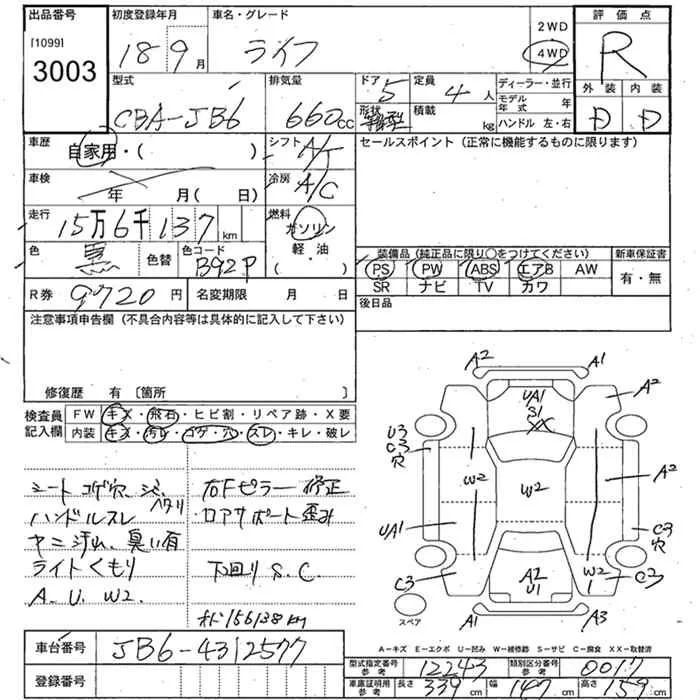 出品番号
[1099]
3003
初度登録年月
18 9月
車名・グレード
ライフ
2WD
4WD
評価点
R
型式
CBA-JB6
排気量
660cc
ドア
5
定員
4人
形状
積載
kg
ディーラー・並行
モデル年式
年
ハンドル 左・右
外装
内装
D
D
車歴
自家用・( )
シフト
A/T
車検
年 月( 日)
冷房
A/C
走行
15万6千137km
燃料
ガソリン
軽・油
( )
色
黒
色替
色コード
B92P
R券
9720円
名変期限 月 日
セールスポイント(正常に機能するものに限ります)
装備品(純正品に限り○をつけてください)
PS PW ABS エアB AW
SR ナビ TV カワ
新車保証書
有・無
後日品
注意事項申告欄(不具合内容等は具体的に記入して下さい)
修復歴 有〔箇所 〕
検査員記入欄
FW キズ・飛石・ヒビ割・リペア跡・X要
内装 キズ・汚レ・コゲ・穴・スレ・キレ・破レ
シート コゲ穴、シミ ヘタリ
ハンドルスレ
ヤニ汚れ、臭い有
ライトくもり
A.U.W2.
右Fピラー 修正
ロアサポート歪み
下回り S.C.
オド156138km
A2
A1
A2
UA1
S1
XX
U3
C3
穴
W2
W2
A2
UA1
C3
穴
C3
A2
U1
W2
1
C3
A1
A3
スペア
A-キズ E-エクボ U-凹み W-補修跡 S-サビ C-腐食 XX-取替済
車台番号
JB6-4312577
登録番号
型式指定番号参考
12243
類別区分番号参考
0017
車庫証明用参考
長さ 339cm
幅 147cm
高さ 159cm